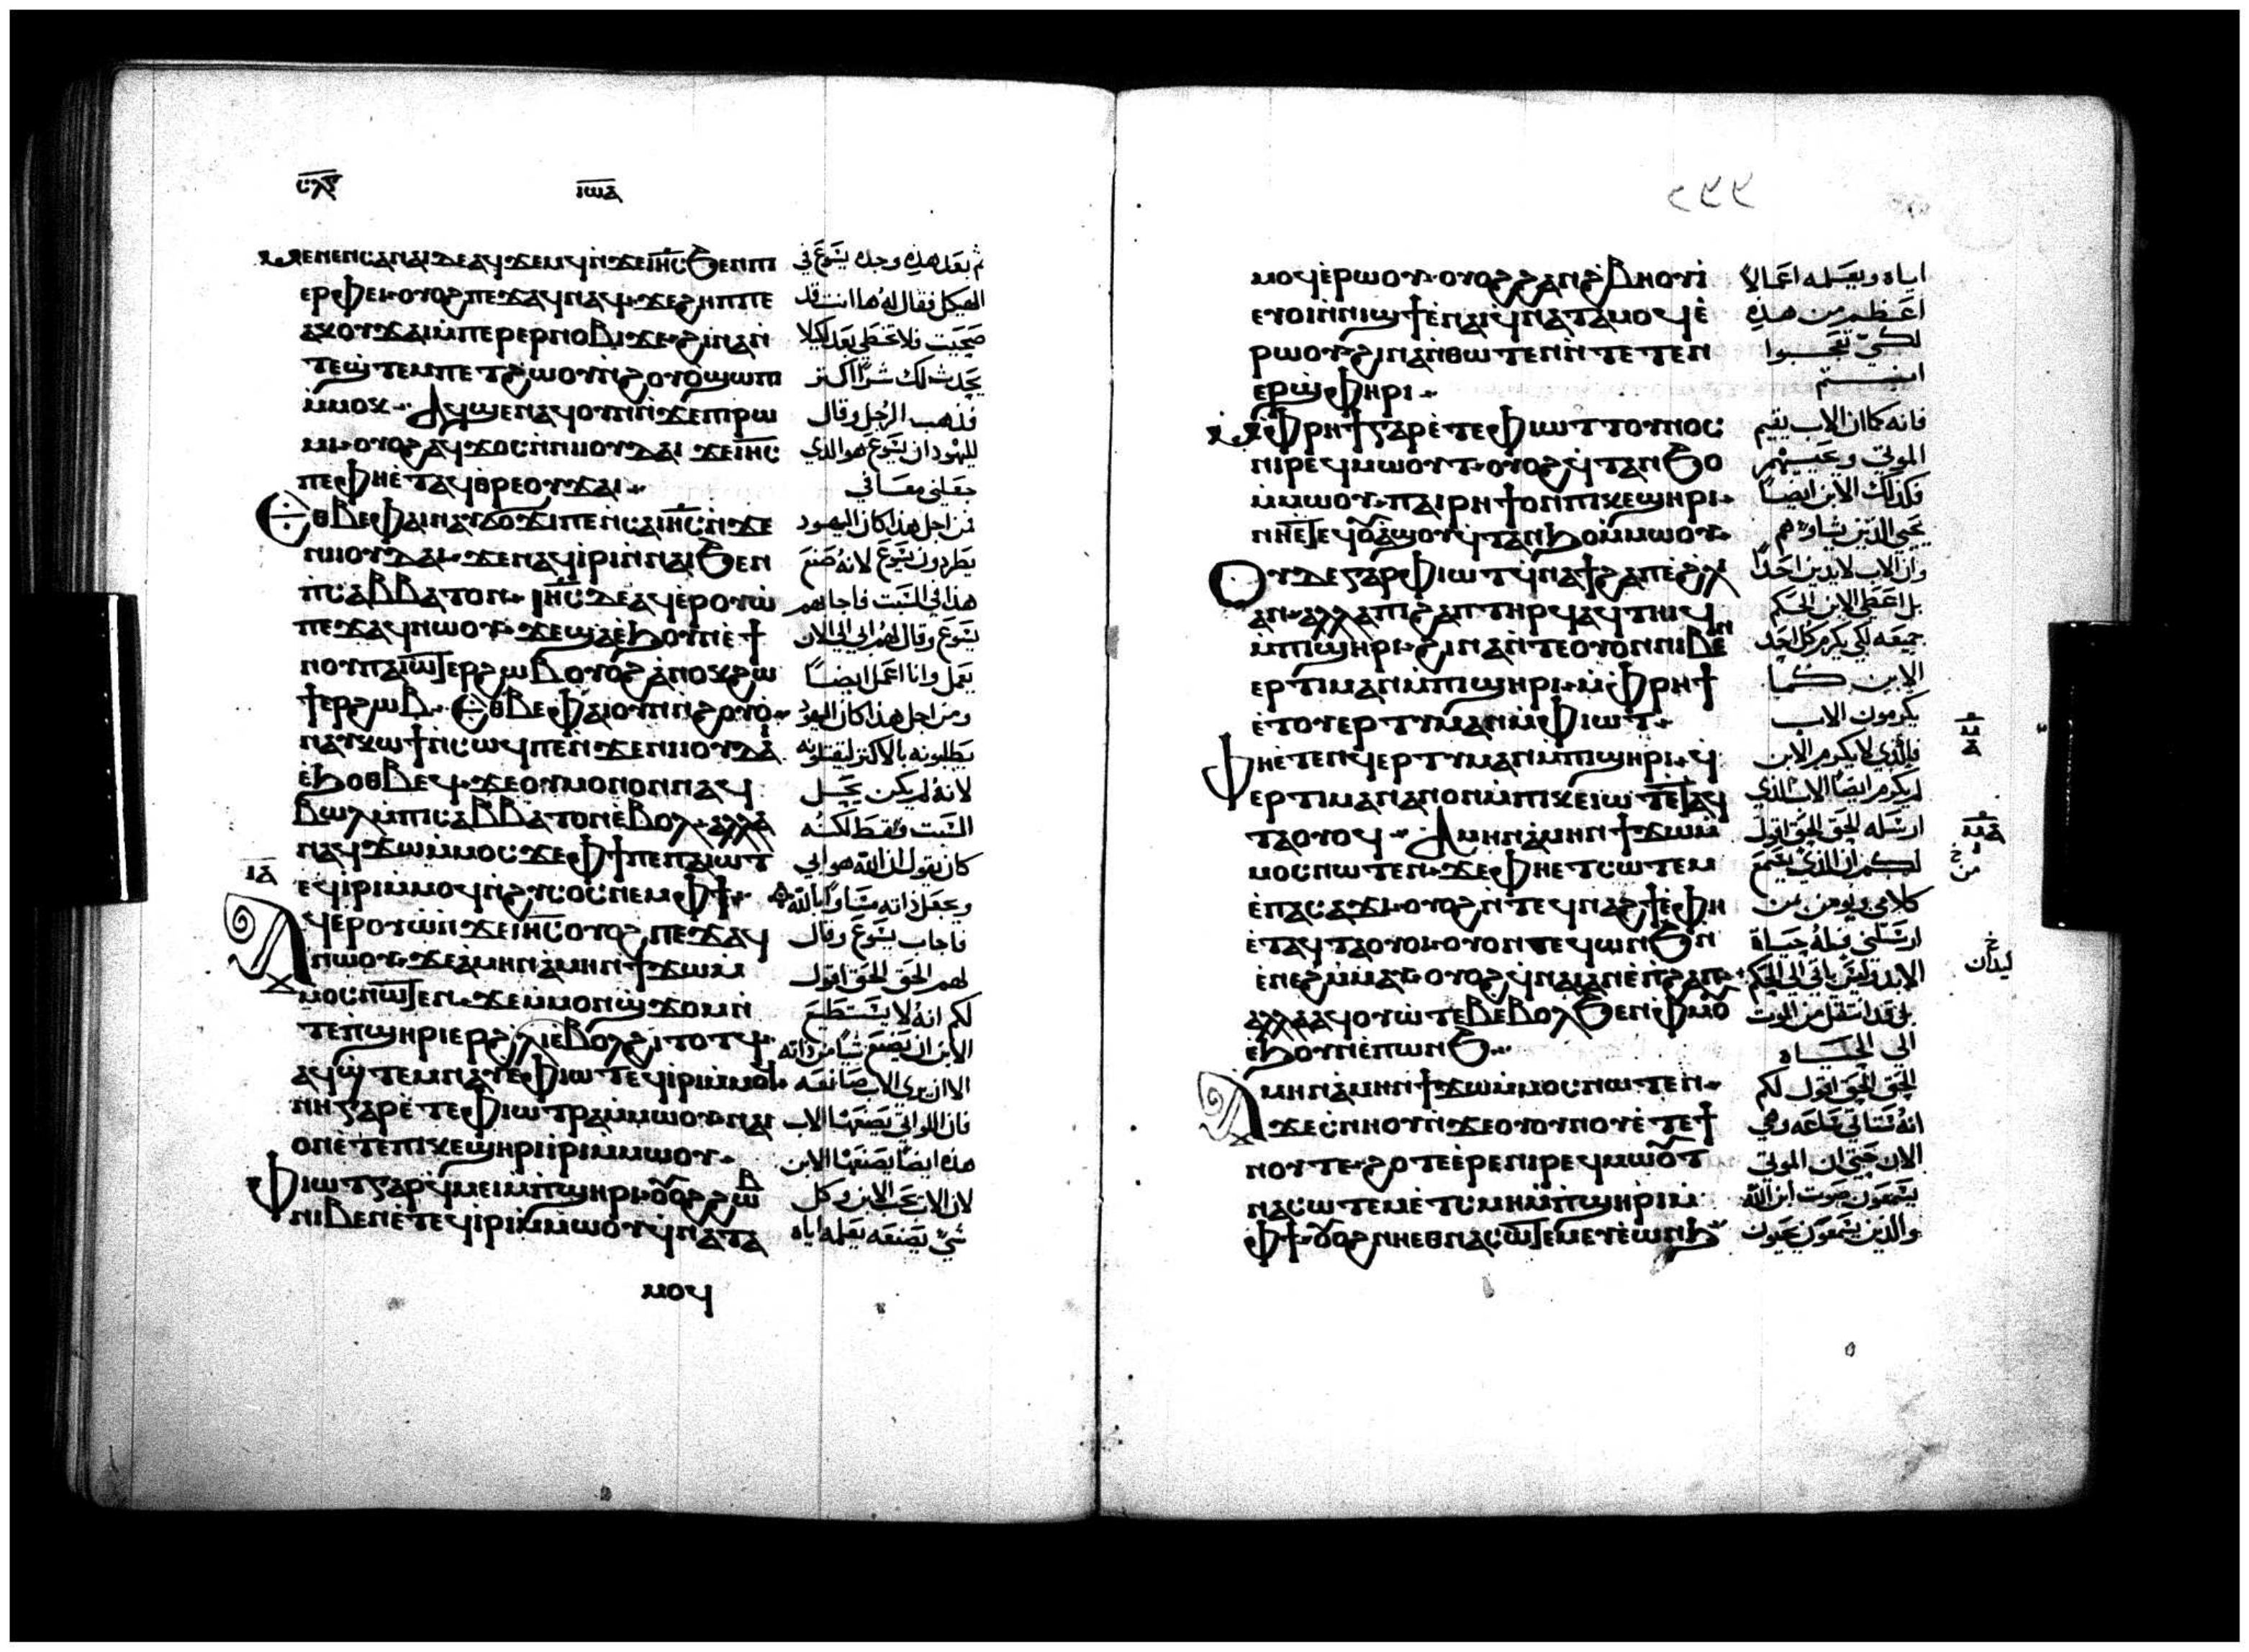 ⲥⲗⲋ
ⲓⲱⲁ
ⲙⲉⲛⲉⲛⲥⲁⲛⲁⲓⲇⲉⲁϥϫⲉⲙϥⲛ̀ϫⲉⲓⲏⲥϧⲉⲛⲡⲓ
ⲉⲣⲫⲉⲓ·ⲟⲩⲟϩⲡⲉϫⲁϥⲛⲁϥ·ϫⲉϩⲏⲡⲡⲉ
ⲁⲕⲟⲩϫⲁⲓⲙ̀ⲡⲉⲣⲉⲣⲛⲟⲃⲓϫⲉ·ϩⲓⲛⲁⲛ̀
ⲧⲉϣ̀ⲧⲉⲙⲡⲉⲧϩⲱⲟⲩⲛ̀ϩⲟⲩⲟ̀ϣⲱⲡⲓ
ⲙ̀ⲙⲟⲕ·ⲁϥϣⲉⲛⲁϥⲟⲩⲛⲛ̀ϫⲉⲡⲓⲣⲱ
ⲙⲓ·ⲟⲩⲟϩⲁϥϫⲟⲥⲛ̀ⲛⲓⲓⲟⲩⲇⲁⲓ ϫⲉⲓⲏⲥ
ⲡⲉⲫⲏⲉ̀ⲧⲁϥⲑⲣⲉⲟⲩϫⲁⲓ·
ⲉⲑⲃⲉⲫⲁⲓⲛⲁⲩϭⲟϫⲓⲡⲉⲛ̀ⲥⲁⲓⲏⲥⲛ̀ϫⲉ
ⲛⲓⲓⲟⲩⲇⲁⲓ·ϫⲉⲛⲁϥⲓ̀ⲣⲓⲛ̀ⲛⲁⲓϧⲉⲛ
ⲡ̀ⲥⲁⲃⲃⲁⲧⲟⲛ·ⲓⲏⲥⲇⲉⲁϥⲉ̀ⲣⲟⲩⲱ̀
ⲡⲉϫⲁϥⲛⲱⲟⲩ·ϫⲉϣⲁⲉ̀ϧⲟⲩⲛⲉ̀ϯ
ⲛⲟⲩⲡⲁⲓⲱⲧⲉⲣϩⲱⲃⲟⲩⲟϩⲁ̀ⲛⲟⲕϩⲱ
ϯⲉⲣϩⲱⲃ·ⲉⲑⲃⲉⲫⲁⲓⲟⲩⲛⲛ̀ϩⲟⲩⲟ̀·
ⲛⲁⲩⲕⲱϯⲛ̀ⲥⲱϥⲡⲉⲛ̀ϫⲉⲛⲓⲓⲟⲩⲇⲁⲓ
ⲉ̀ϧⲟⲑⲃⲉϥ·ϫⲉⲟⲩⲙⲟⲛⲟⲛⲛⲁϥ
ⲃⲱⲗⲙ̀ⲡⲓⲥⲁⲃⲃⲁⲧⲟⲛⲉ̀ⲃⲟⲗ·ⲁⲗⲗⲁ
ⲛⲁϥϫⲱⲙ̀ⲙⲟⲥϫⲉⲫϯⲡⲉⲡⲁⲓⲱⲧ
ⲉϥⲓ̀ⲣⲓⲙ̀ⲙⲟϥⲛ̀ϩⲩⲥⲟⲥⲛⲉⲙⲫϯ·
ⲓⲁ
ⲁϥⲉⲣⲟⲩⲱⲛ̀ϫⲉⲓⲏⲥⲟⲩⲟϩⲡⲉϫⲁϥ
ⲛⲱⲟⲩ·ϫⲉⲁⲙⲏⲛⲁⲙⲏⲛϯϫⲱⲙ̀
ⲙⲟⲥⲛⲱⲧⲉⲛ·ϫⲉⲙ̀ⲙⲟⲛϣ̀ϫⲟⲙⲛ̀
ⲧⲉⲡ̀ϣⲏⲣⲓⲉⲣϩⲗⲓⲉ̀ⲃⲟⲗϩⲓⲧⲟⲧϥ·
ⲁϥϣ̀ⲧⲉⲙⲛⲁⲩⲉ̀ⲫⲓⲱⲧⲉϥⲓ̀ⲣⲓⲙ̀ⲙⲟⲥ·
ⲛⲏⲅⲁⲣⲉ̀ⲧⲉⲫⲓⲱⲧⲣⲁⲙ̀ⲙⲱⲟⲩ·ⲛⲁⲓ
ⲟⲛⲉ̀ⲧⲉⲡⲓⲕⲉϣⲏⲣⲓⲓ̀ⲣⲓⲙ̀ⲙⲱⲟⲩ·
ⲫⲓⲱⲧⲅⲁⲣϥ̀ⲙⲉⲓⲙ̀ⲡⲓϣⲏⲣⲓ·ⲟⲩⲟϩϩⲱⲃ
ⲛⲓⲃⲉⲛⲉ̀ⲧⲉϥⲓ̀ⲣⲓⲙ̀ⲙⲱⲟⲩϥ̀ⲛⲁⲧⲁ
ⲙⲟϥ
ثم بعد هذه وجده يسوع في
الهيكل فقال له ها انت قد
صحيت فلا تخطي بعد لكيلا
يحدث لك شراً اكثر
فذهب الرجل وقال
لليهود ان يسوع هو الذي
جعلني معافي
من اجل هذا كان اليهود
يطردون يسوع لانه صنع
هذا في السبت فاجابهم
يسوع وقال لهم ابي الي الان
يعمل وانا اعمل ايضاً
ومن اجل هذا كان اليهود
يطلبونه بالاكثر ليقتلونه
لانه لم يكن يحل
السبت فقط لكنه
كان يقول ان الله هو ابي
ويجعل ذاته مساوياً بالله
فاجاب يسوع وقال
لهم الحق الحق اقول
لكم انه لا يستطيع
الابن ان يصنع شياً من ذاته
الا ان يري الاب صانعه
فان اللواتي يصنعها الاب
هذه ايضاً يصنعها الابن
لان الاب يحب الابن وكل
شي يصنعه يعلمه اياه
ⲙⲟϥⲉ̀ⲣⲱⲟⲩ·ⲟⲩⲟϩϩⲁⲛϩ̀ⲃⲏⲟⲩⲓ̀
ⲉⲩⲟⲓⲛ̀ⲛⲓϣϯⲉ̀ⲛⲁⲓϥ̀ⲛⲁⲧⲁⲙⲟϥⲉ̀
ⲣⲱⲟⲩ·ϩⲓⲛⲁⲛ̀ⲑⲱⲧⲉⲛⲛ̀ⲧⲉⲧⲉⲛ
ⲉⲣϣ̀ⲫⲏⲣⲓ·
ⲙ̀ⲫⲣⲏϯⲅⲁⲣⲉ̀ⲧⲉⲫⲓⲱⲧⲧⲟⲩⲛⲟⲥ
ⲛⲓⲣⲉϥⲙⲱⲟⲩⲧ·ⲟⲩⲟϩϥ̀ⲧⲁⲛϧⲟ
ⲙ̀ⲙⲱⲟⲩ·ⲡⲁⲓⲣⲏϯⲟⲛⲡⲓⲕⲉϣⲏⲣⲓ·
ⲛⲏⲉ̀ⲧⲉϥⲟⲩⲁϣⲟⲩϥ̀ⲧⲁⲛϧⲟⲙ̀ⲙⲱⲟⲩ·
ⲟⲩⲇⲉⲅⲁⲣⲫⲓⲱⲧϥ̀ⲛⲁϯϩⲁⲡⲉ̀ϩⲗⲓ
ⲁⲛ·ⲁⲗⲗⲁⲡⲓϩⲁⲡⲧⲏⲣϥⲁϥⲧⲏⲓϥ
ⲙ̀ⲡⲓϣⲏⲣⲓ·ϩⲓⲛⲁⲛ̀ⲧⲉⲟⲩⲟⲛⲛⲓⲃⲉⲛ
ⲉⲣⲧⲓⲙⲁⲛⲙ̀ⲡⲓϣⲏⲣⲓ·ⲙ̀ⲫⲣⲏϯ
ⲉ̀ⲧⲟⲩⲉⲣⲧⲩⲙⲁⲛⲙ̀ⲫⲓⲱⲧ·
ⲫⲏⲉⲧⲉⲛϥⲉⲣⲧⲩⲙⲁⲛⲙ̀ⲡⲓϣⲏⲣⲓ·ϥ̀
ⲉⲣⲧⲓⲙⲁⲛⲁⲛⲟⲛⲙ̀ⲡⲓⲕⲉⲓⲱⲧⲉ̀ⲧⲁϥ
ⲧⲁⲟⲩⲟϥ·ⲁⲙⲏⲛⲁⲙⲏⲛϯϫⲱⲙ̀
ⲙⲟⲥⲛⲱⲧⲉⲛ·ϫⲉⲫⲏⲉⲧⲥⲱⲧⲉⲙ
ⲉ̀ⲡⲁⲥⲁϫⲓ·ⲟⲩⲟϩⲛ̀ⲧⲉϥⲛⲁϩϯⲉ̀ⲫⲏ
ⲉ̀ⲧⲁϥⲧⲁⲟⲩⲟⲓ·ⲟⲩⲟⲛⲧⲉϥⲱⲛϧⲛ̀
ⲉ̀ⲛⲉϩⲙ̀ⲙⲁⲩ·ⲟⲩⲟϩϥ̀ⲛⲁⲓⲁⲛⲉ̀ⲡ̀ϩⲁⲡ·
ⲁⲗⲗⲁⲁϥⲟⲩⲱ̀ⲧⲉⲃⲉⲃⲟⲗϧⲉⲛⲫ̀ⲙⲟⲩ
ⲉ̀ϧⲟⲩⲛⲉ̀ⲡⲱⲛϧ·
ⲁⲙⲏⲛⲁⲙⲏⲛϯϫⲱⲙ̀ⲙⲟⲥⲛⲱⲧⲉⲛ·
ϫⲉⲥ̀ⲛⲏⲟⲩⲛ̀ϫⲉⲟⲩⲟⲩⲛⲟⲩⲉ̀ⲧⲉϯ
ⲛⲟⲩⲧⲉ·ϩⲟⲧⲉⲉ̀ⲣⲉⲛⲓⲣⲉϥⲙⲱⲟⲩⲧ
ⲛⲁⲥⲱⲧⲉⲙⲉ̀ⲧ̀ⲥⲙⲏⲙ̀ⲡ̀ϣⲏⲣⲓⲙ̀
ⲫϯ·ⲟⲩⲟϩⲛⲏⲉⲑⲛⲁⲥⲱⲧⲉⲙⲉⲩⲉ̀ⲱⲛϧ
اياه ويعلمه اعمالاً
اعظم من هذه
لكي تتعجبوا
انتم
فانه كما ان الاب يقيم
الموتي ويحييهم
فكذلك الابن ايضاً
يحيي الذين يشاوهم
وان الاب لا يدين احداً
بل اعطي الابن الحكم
جميعه لكي يكرم كل احد
الابن كما
يكرمون الاب
فالذي لا يكرم الابن
لم يكرم ايضاً الاب الذي
ارسله الحق الحق اقول
لكم ان الذي يسمع
كلامي ويومن بمن
ارسلني فله حياة
الابد وليس ياتي الي الحكم
بل قد انتقل من الموت
الي الحياه
الحق الحق اقول لكم
انه ستاتي ساعه وهي
الان حتي ان الموتي
يسمعون صوت ابن الله
والذين يسمعون يحيون